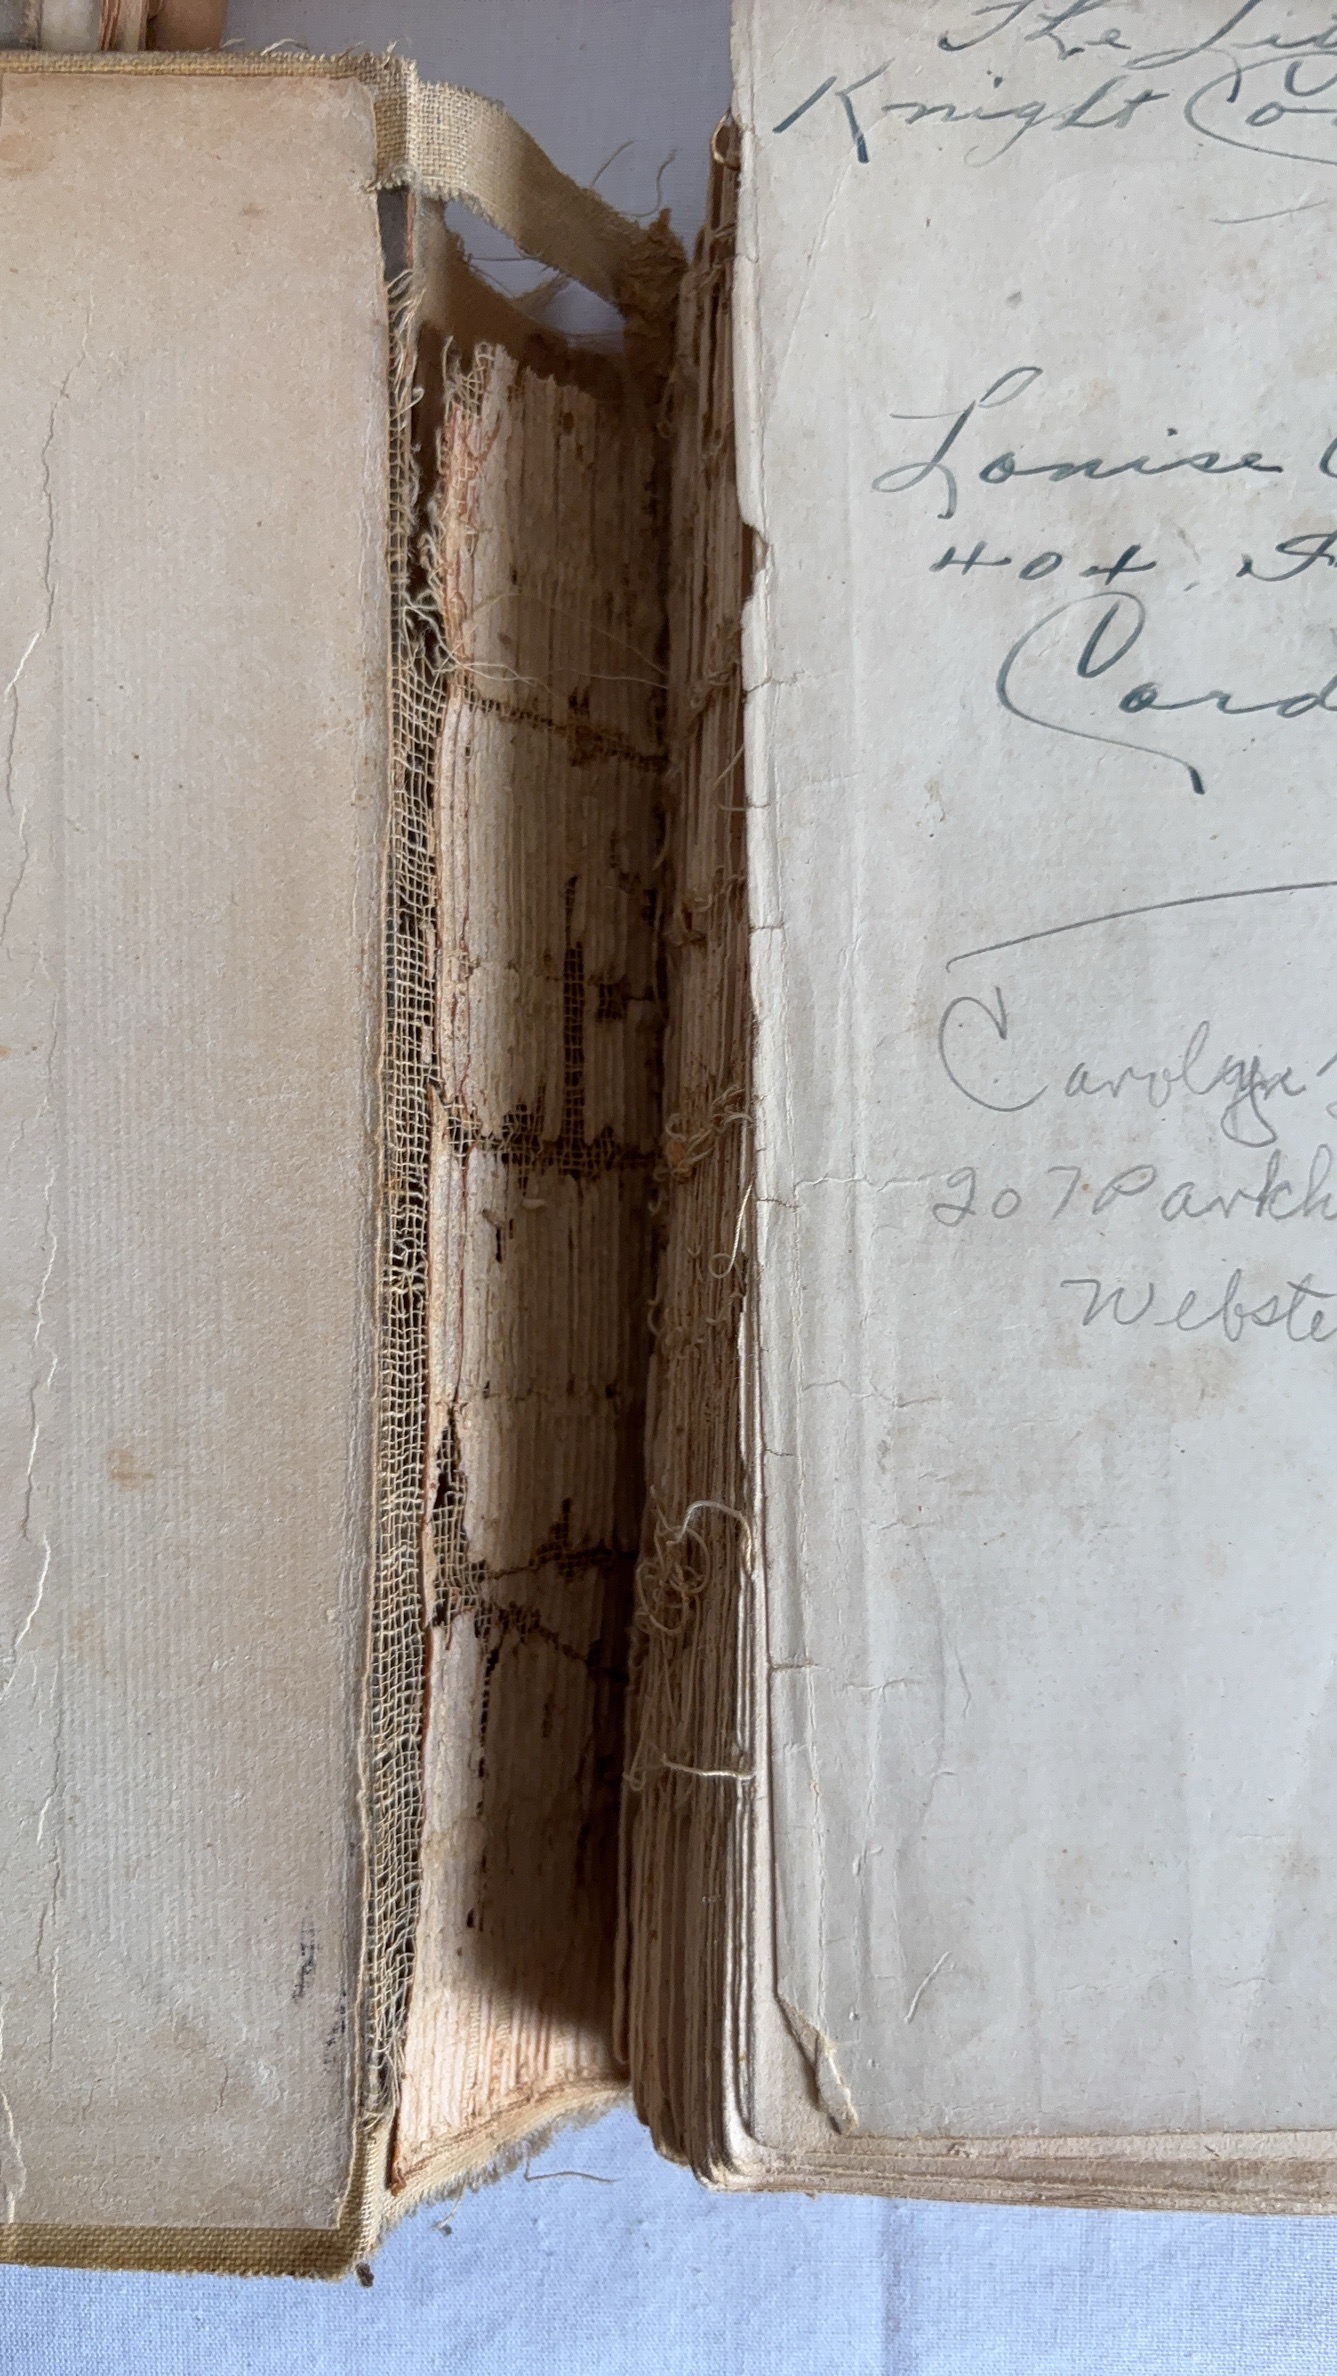 The Lis
Knight Co
Louise
404
Cord
Carolyn
207 Parkh
Webste